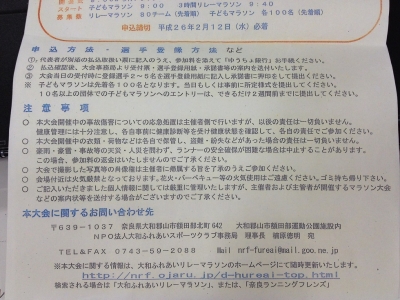 スタート 子どもマラソン 9:00 3時間リレーマラソン 9:40
募集数 リレーマラソン 80チーム（先着順） 子どもマラソン 各100名（先着順）
申込締切 平成26年2月12日（水）必着
申込方法・選手登録方法 など
①、代表者が別途の払込取扱い票に記入のうえ、参加料を添えて「ゆうちょ銀行」お手続ください。
②、払込確認後、大会事務局より受付票・選手登録用紙・承諾書等の案内を送付いたします。
③、大会当日の受付時に登録選手2～6名を選手登録用紙に記入し承諾書に押印をして提出ください。
※ 子どもマラソンは先着各100名となります。当日もしくは事前に所定様式を提出ください。
10名以上の団体での子どもマラソンへのエントリーは、できるだけ2週間前までに提出ください。
注意事項
○ 本大会開催中の事故傷害についての応急処置は主催者側で行いますが、以後の責任は一切負いません。
健康管理には十分注意し、各自事前に健康診断等を受け健康状態を確認して、各自の責任でご参加ください。
○ 本大会開催中の衣類・荷物などは各自で保管し、盗難・紛失などがあった場合の責任は一切負いません。
○ 豪雨・豪雪・事故等の天災・人災を問わず、ランナーの安全確保が困難な場合は中止することがあります。
この場合、参加料の返金はいたしませんのでご了承ください。
○ 大会で撮影した写真等の肖像権は主催者に帰属する旨を了承のうえご参加ください。
○ 会場付近は火気厳禁となっております。花火・バーベキュー等の火気使用はご遠慮ください。ゴミ持ち帰り下さい。
○ ご記入いただきました個人情報に関しては厳重に管理いたしますが、主催者および主管者が開催するマラソン大会などの案内状等を送付させていただくことがありますのでご了承ください。
本大会に関するお問い合わせ先
〒639-1037 奈良県大和郡山市額田部北町642 大和郡山市額田部運動公園施設内
NPO法人大和ふれあいスポーツクラブ事務局 理事長 植原徳明 宛
TEL&FAX 0743-59-2088 Mail nrf-fureai@mail.goo.ne.jp
※本大会に関する情報は、大和ふれあいリレーマラソンのホームページにて随時更新いたします。
http://nrf.ojaru.jp/d-hureai-top.html
検索される場合は「大和ふれあいリレーマラソン」、または、「奈良ランニングフレンズ」